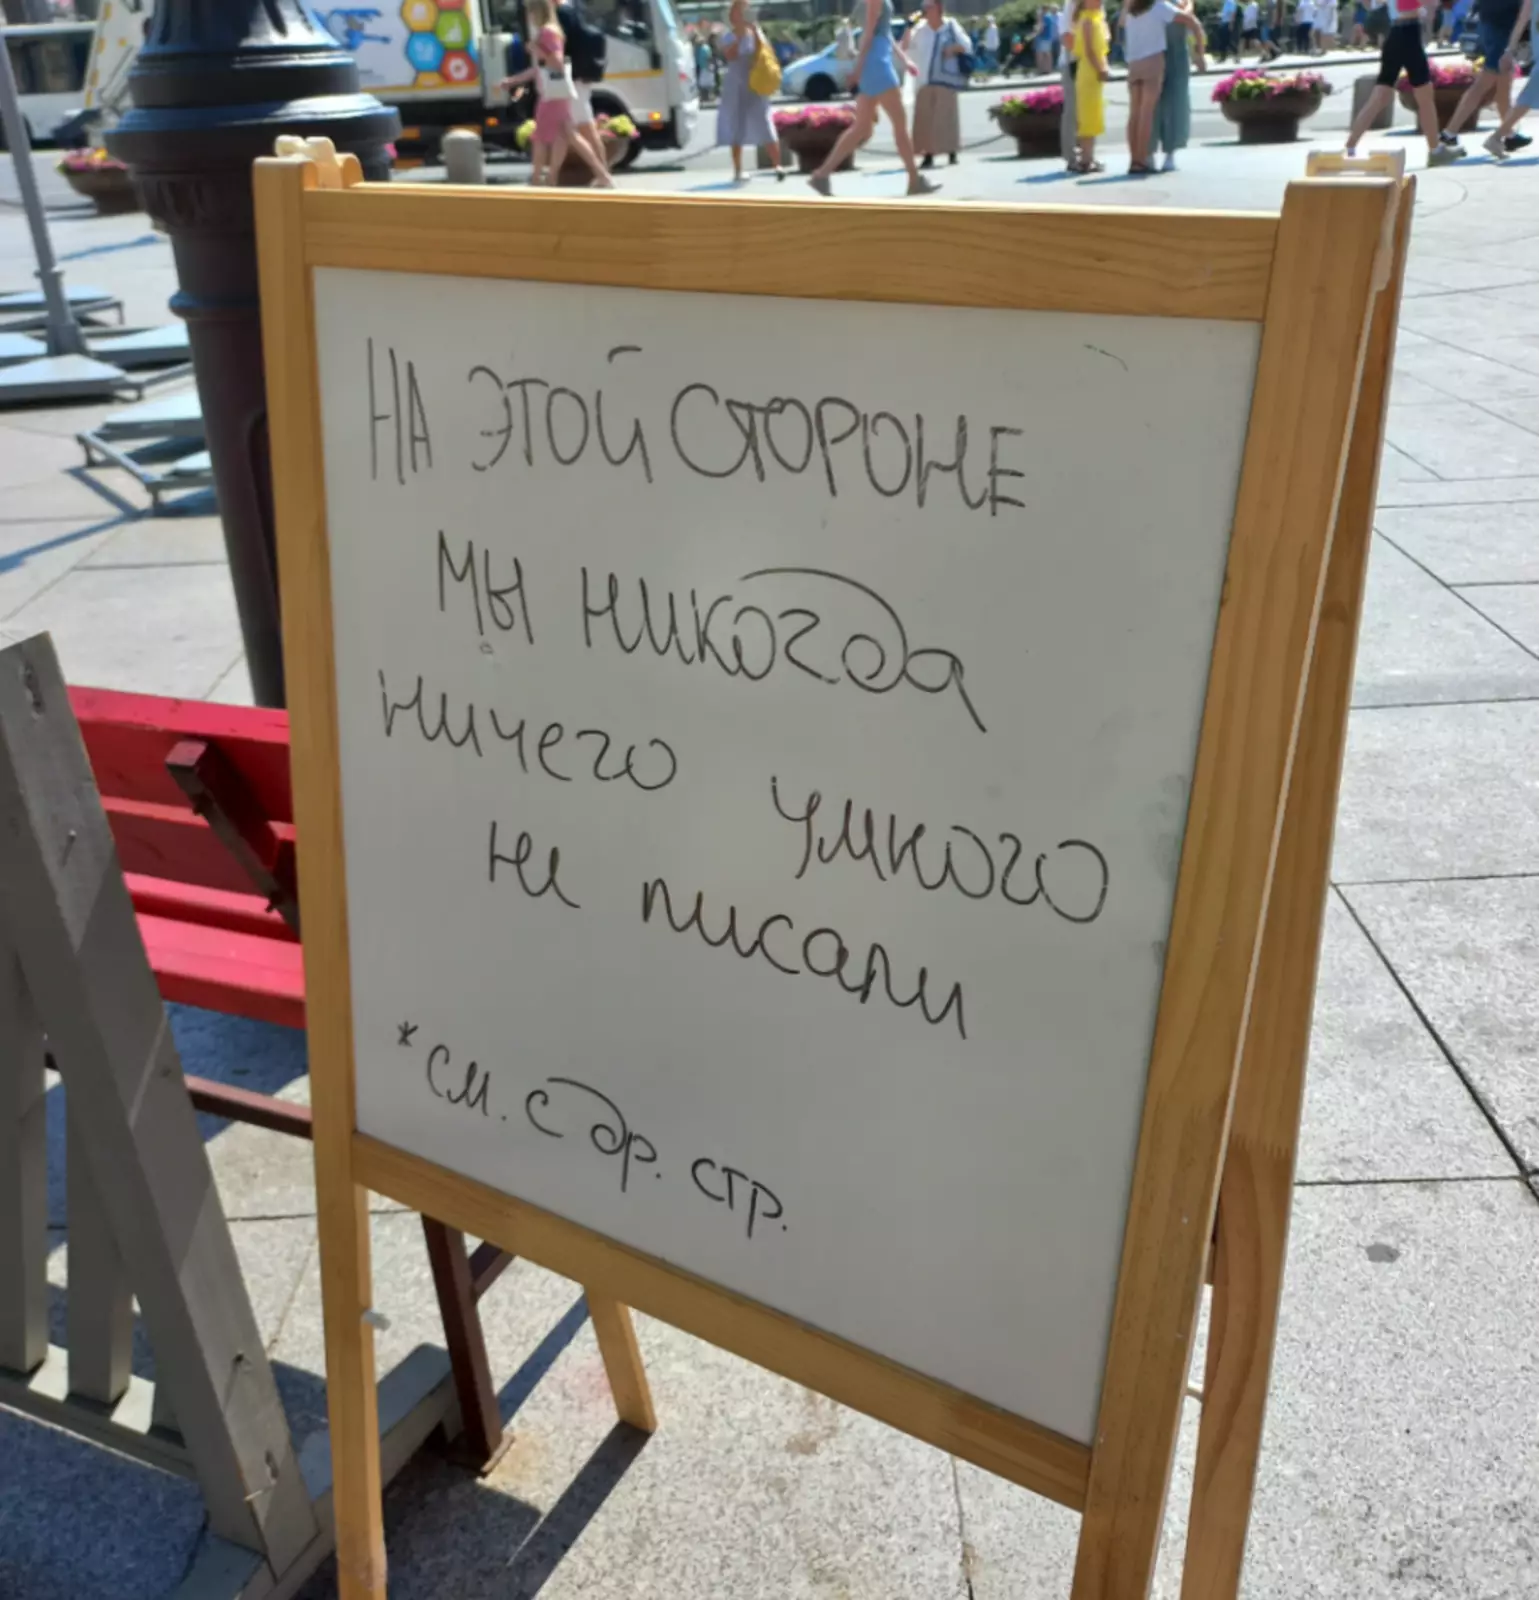 НА ЭТОЙ СТОРОНЕ
МЫ никогда
ничего умного
не писали
*см. с др. стр.